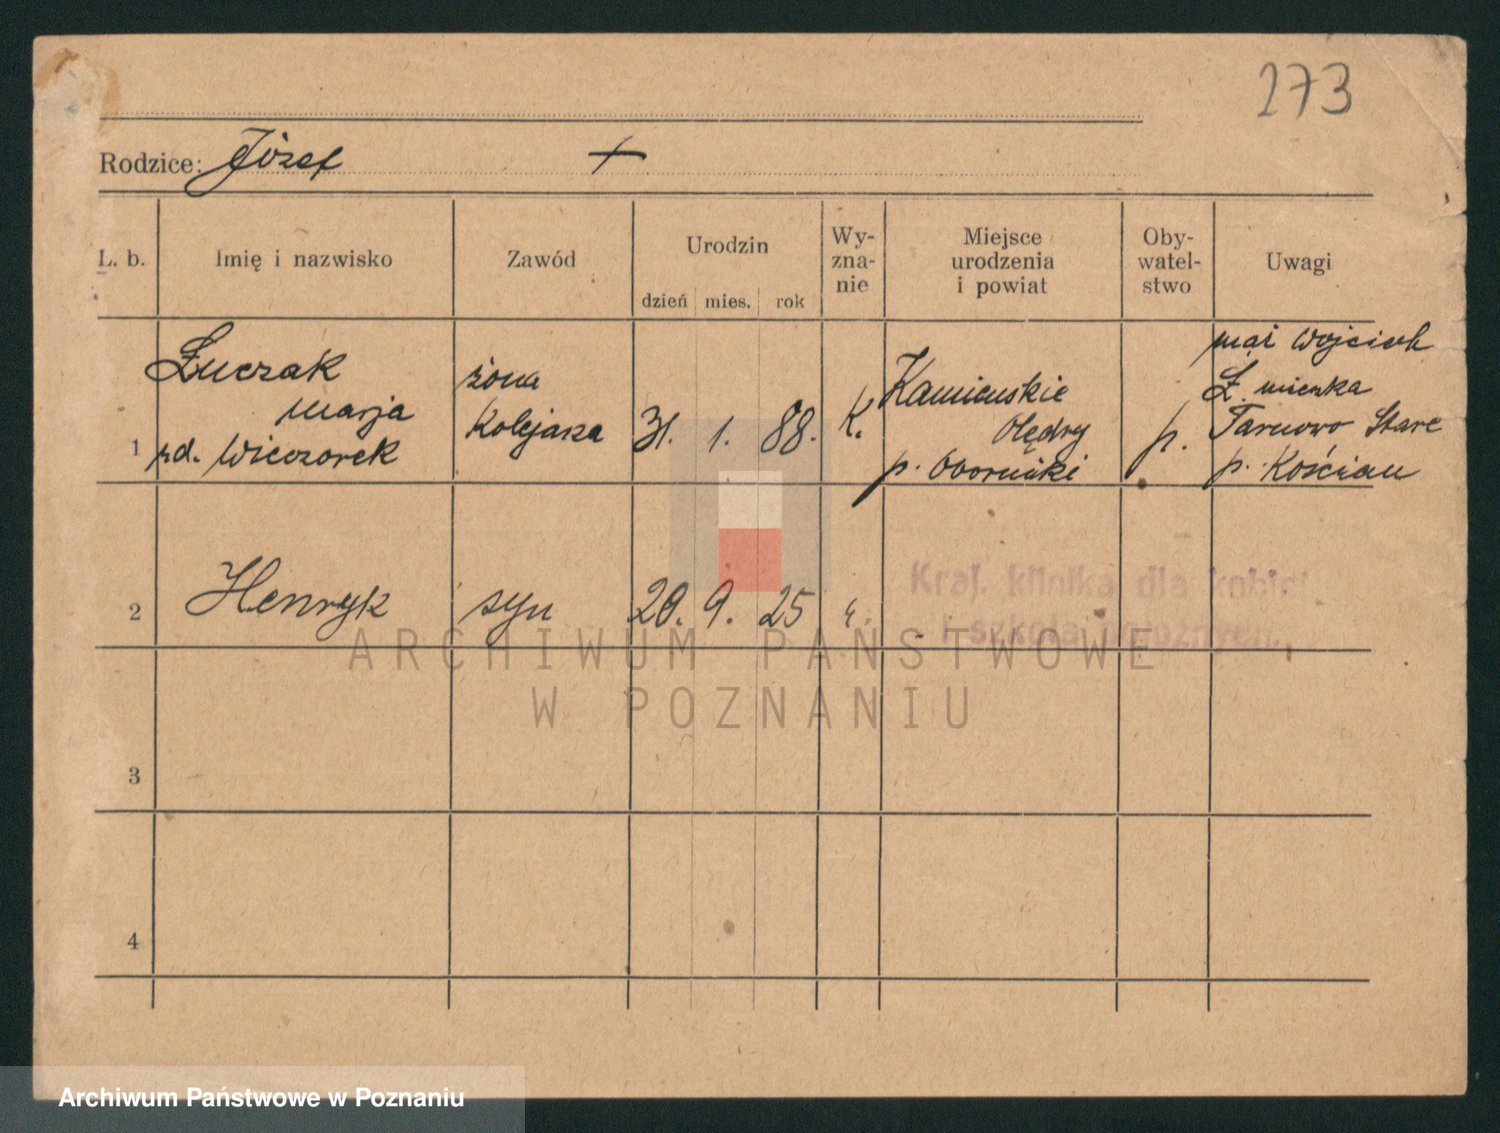 273
Rodzice: Józef +
L. b. Imię i nazwisko Zawód Urodzin dzień mies. rok Wy-zna-nie Miejsce urodzenia i powiat Oby-watel-stwo Uwagi
1 Łuczak Marja rd. Wieczorek
żona Kolejarza
31. 1. 88. K.
Kamieńskie Olędry p. Oborniki
p.
mąż Wojciech
Ł. mieszka
Tarnowo Stare
p. Kościan
2 Henryk syn 20. 9. 25
Kraj. klinika dla kobiet
i szkoła położnych
3
4
ARCHIWUM PAŃSTWOWE
W POZNANIU
Archiwum Państwowe w Poznaniu